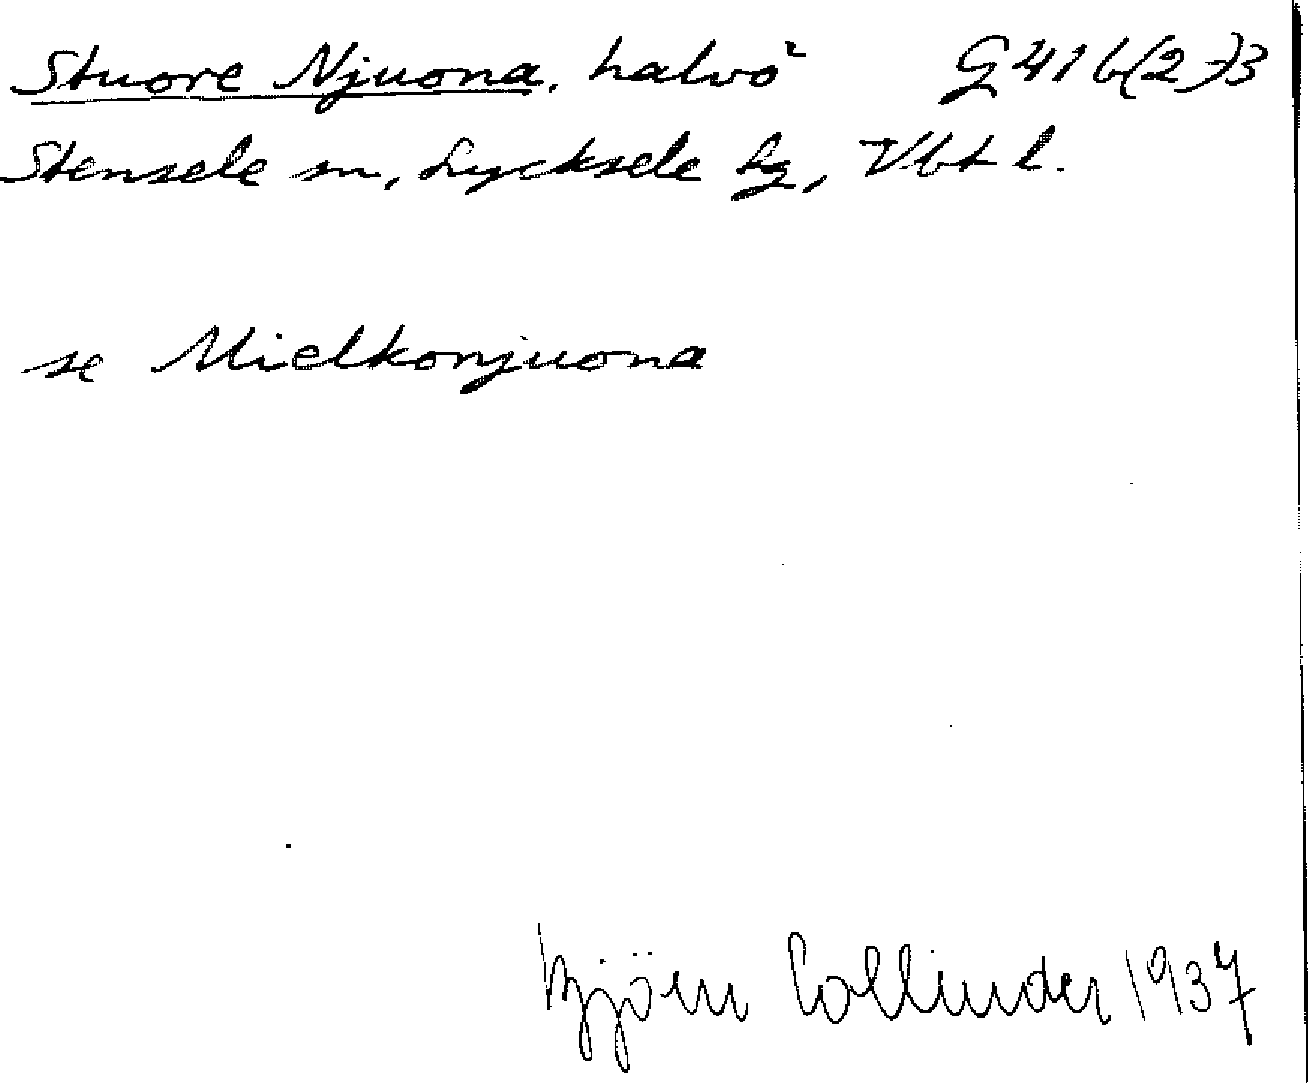 Stuore Njuona, halvö G 41 b(2-)3
Stensele sn, Lycksele tg, Vbt l.
se Mielkonjuona
Björn Collinder 1937